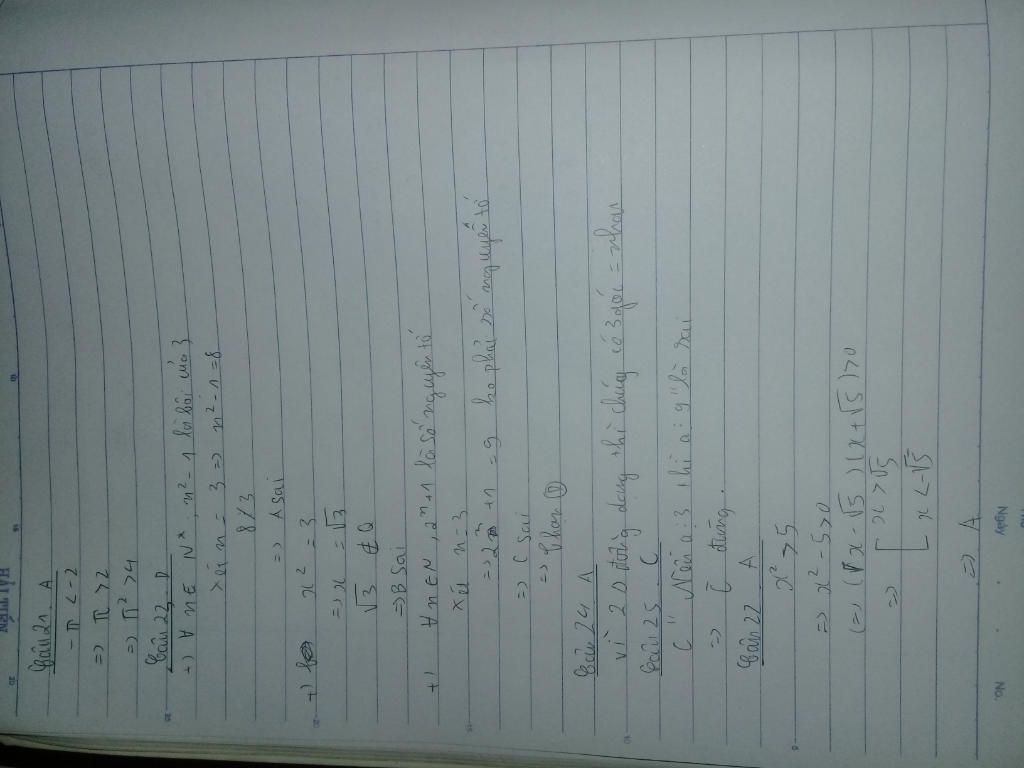 No.
Ngày
Câu 21. A
-π < -2
=> π > 2
=> π² > 4
Câu 22. D
+) ∀ n ∈ N*, n² - 1 là bội của 3
Xét n = 3 => n² - 1 = 8
8 ⋮̸ 3
=> A sai
+) x² = 3
=> x = √3
√3 ∉ Q
=> B sai
+) ∀ n ∈ N, 2ⁿ + 1 là số nguyên tố
Xét n = 3
=> 2ⁿ + 1 = 9 ko phải số nguyên tố
=> C sai
=> Chọn D
Câu 24 A
Vì 2 Δ đồng dạng thì chúng có 3 góc = nhau
Câu 25. C
C "Nếu a ⋮ 3 thì a ⋮ 9" là sai
=> C̅ đúng.
Câu 27 A
x² > 5
=> x² - 5 > 0
(=> (x - √5)(x + √5) > 0
=> [ x > √5
[ x < -√5
=> A